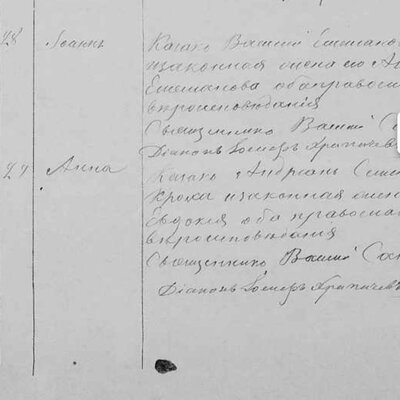 28 Іоаннъ Казакъ Василій Симеонов
и законная жена его Ан
Емельянова оба правосл
вѣроисповѣданія
Священникъ Василій С
Діаконъ Іосифъ Храпачевъ
29 Анна Казакъ Андріанъ Сем
и законная жена
Евдокія оба православ
вѣроисповѣданія
Священникъ Василій
Діаконъ Іосифъ Храпачевъ